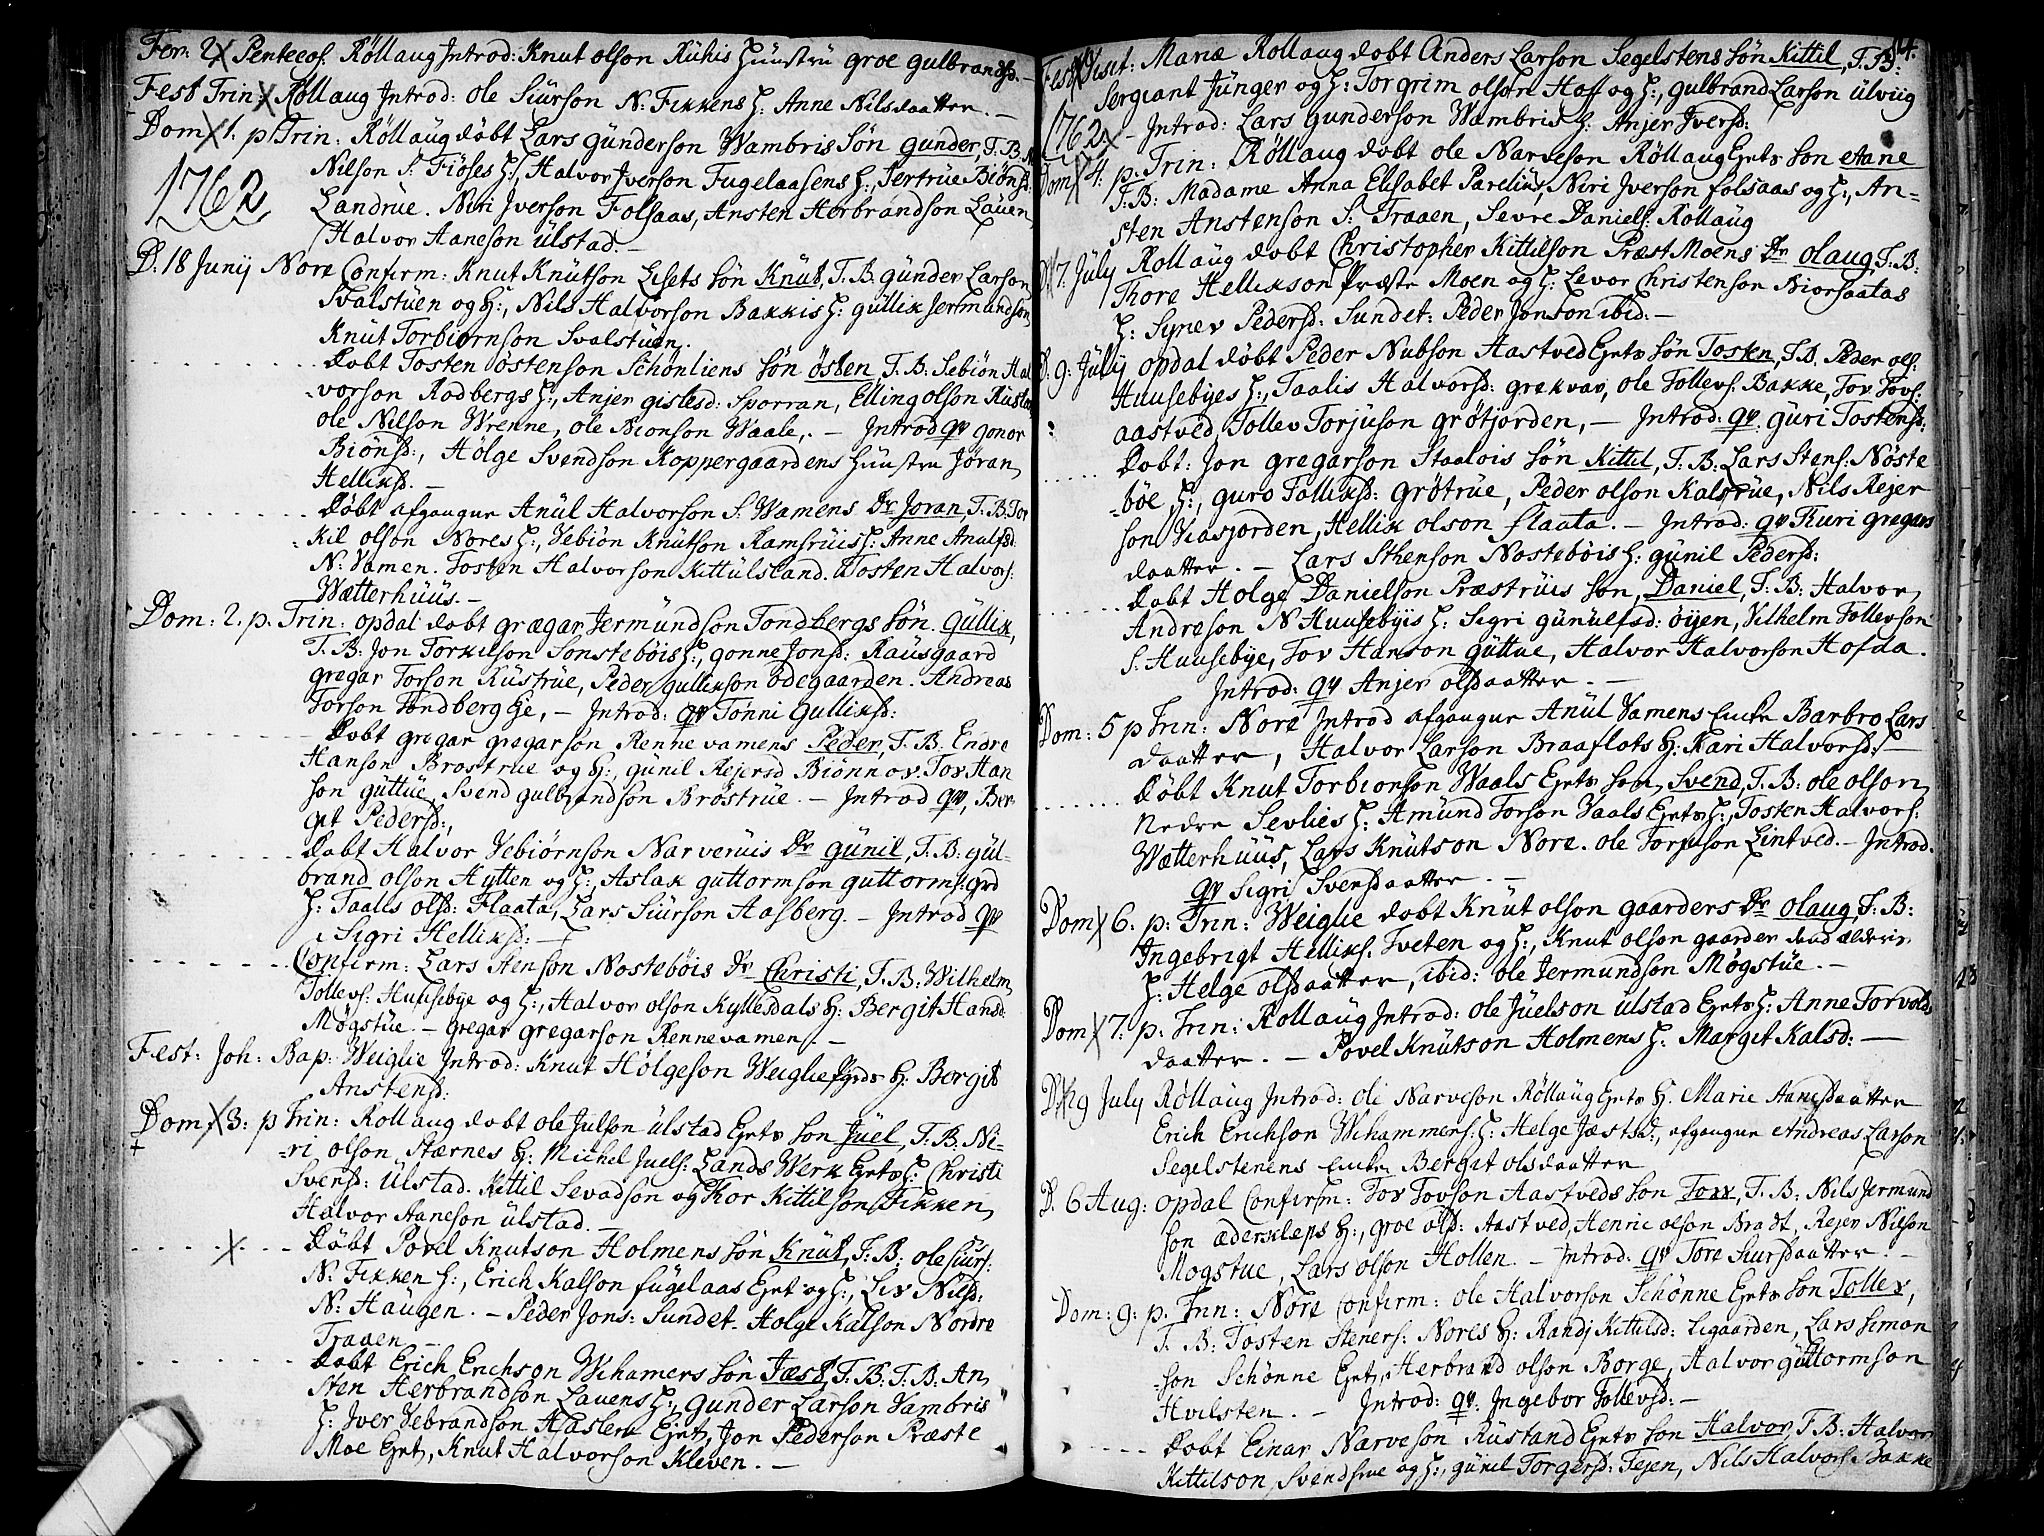 Fer: 2 Pentecos: Rollaug Introd: Knut olson Rukis Huustru groe gulbrandsd. –
Fest Trin: Rollaug Introd: ole Siurson N: Fikkens H: Anne Nilsdaatter. –
Dom 1. p. Trin: Rollaug dobt Lars Gunderson Wambris Sön gunder, T. B.
1762
Nilson S: Fiöses H:, Halvor Jverson Fugelaasens H:, Sertrue Biönsd:
Landrue. Niri Jverson Folsaas, Ansten Herbrandson Lauen,
Halvor Aaneson ülstad. –
D. 18 Junij Nore Confirm: Knut Knutson Lisets sön Knut, T. B. gunder Larson
Svalstuen og H:, Nils Halvorson Bakkis H: gullik Jermundson,
Knut Torbiornson Svalstuen.
Dobt Tosten östenson Schönliens sön östen T. B. Sebiön Hal
vorson Rodbergs H:, Anjer gislesd: Sporran, Elling olson Rustan
ole Nilson Wrenne, ole Bionson Waale, – Introd qv gonor
Biönsd:, Hölge Svendson Koppergaardens Huustru Jöran
Helliksd. –
Döbt afgangne Anul Halvorson S. Wamens Dr Joran, T. B. Tor
kil olson Nores H:, Vebiön Knutson Ramsruis H: Anne Anulfsd.
N: Vamen. Tosten Halvorson Kittulsland. Tosten Halvors:
Wætterhuus. –
Dom: 2. p. Trin: opdal dobt grægar Jermundson Tondbergs Sön Gullik,
T. B: Jon Torkilson Sonstebois H:, gonne Jonsd: Rausgaard
gregar Torson Rustrue, Peder gullikson ödegaarden. Andreas
Torson Tondberg Eje, – Introd: qv Tonni Gulliksd:
Dobt gregar gregarson Renne vamens Peder, T. B: Endre
Hanson Brostrue og H:, gunil Rejersd Biönnos. Tov Han
son guttue, Svend gulbrandson Bröstrue. – Introd qv, Ber
git Pedersd:,
Dobt Halvor Vebiörnson Narveruis Dr günil, T. B: gul-
brand olson Aytten og H:, Aslak guttormson guttorms: grd
H: Taalis olsd: Flaata, Lars Siurson Aasberg. – Introd qv
Sigri Helliksd: –
Confirm: Lars Stenson Nostebois Dr Christi, T. B: Wilhelm
Tollevs: Huusebye og H:, Halvor olson Kyllesdals H: Bergit Hansd.
Mögstue. – gregar gregarson Rennevamen. –
Fæst: Joh: Bap: Weiglie Introd: Knut Hölgeson Weigliefgrds H: Bergit
Anstensd:
Dom 3: p Trin: Rollaug dobt ole Julson ülstad Ejets son Juel, T. B: Ni-
ri olson Stærnes H: Michel Juels: Lands Werk Ejets H: Christi
Svensd: ülstad. Kittil Sevadson og Thor Kittilson Fikken,
Halvor Aaneson ülstad. –
Döbt Povel Knutson Holmens sön Knut, T. B: ole Siurs:
N: Fikken H:, Erich Kalson fugelaas Ejet og H:, Liv Nilsd:
N: Haugen. – Peder Jons: Sundet. Holge Kalson Nordre
Traaen –
Dobt Erich Erichson Wehamers sön Jæst, T. B: T: B: An
sten Herbrandson Lauens H:, gunder Larson Vambris
H: Jver Vebrandson Haslem Ejet, Jon Pederson Præste
Moe Ejet, Knut Halvorson Kleven. –
14.
Fest Visit: Mariæ Rollaug dobt Anders Larson Segelstens sön Kittil, T. B:
Sergiant Junger og H: Torgrim olson Hoff og H:, gulbrand Larson ülviig
1762. – Introd: Lars gunderson Wambris H: Anjer Jversd:
Dom 4: p. Trin: Röllaug dobt ole Narveson Röllaug Ejets son Aane
T. B: Madame Anna Elisabet Parelius, Niri Jverson folsaas og H:, An-
sten Anstenson S: Traaen, Sevre Daniels: Rollaug
D 7. July Rollaug dobt Christopher Kittilson Præst Moens Dr olaug, T. B:
Thore Hellikson Præste Moen og H: Levor Christenson Biorsaatas
H: Synev Pedersd: Sundet: Peder Jonson ibid: –
D. 9: July opdal döbt Peder Nubson Aastved Ejets sön Tosten, T. B. Peder ols:
Huusebyes H:, Taalis Halvorsd: grekvar, ole Tollevs: Bakke, Tov Tovs:
aastved, Tollev Torjuson grötjorden, – Introd: qv. guri Tostensd.
Dobt: Jon gregarson Staalois sön Kittil, T. B: Lars Stens: Nöste
böe H:, guro Folliksd: grötrue, Peder olson Kalsrue, Nils Rejer
son Viasjorden, Hellik olson flaata. – Introd: qv Thuri gregars
daatter. – Lars Sthenson Nostebois H: gunil Pedersd:
dobt Holge Danielson Præstruis son, Daniel, T. B: Halvor
Andreson N Huusebyis H: Sigri gunulfsd: öyen, Vilhelm Tollevson
S. Huusebye, Tov Hanson güttue, Halvor Halvorson Hofda.
Introd: qv Anjer olsdaatter. –
Dom: 5 p Trin: Nore Introd afgangne Anul Vamens Enke Barbro Lars
daatter, Halvor Larson Braaflots H: Kari Halvorsd: –
Döbt Knut Torbionson Waals Ejets son, Svend, T. B: ole olson
Nedre Sevlies H: Amund Torson Vaals Ejets H:, Tosten Halvors:
Wætterhuus, Lars Knutson Nore. ole Torjuson Lintved. – Introd.
qv Sigri Svensdaatter. –
Dom 6. p: Trin: Weiglie dobt Knut olson gaarders Dr olaug, T. B:
Ingebrigt Helliks. Tveten og H:, Knut olson gaarder
H: Helge olsdaatter, ibid: ole Jermundson Mögstue. –
Dom 7: p: Trin: Rollaug Introd: ole Juelson ülstad Ejets H: Anne Torvolds
daatter. – Povel Knutson Holmens H: Margit Kalsd: –
D. 29 July Röllaug Introd: ole Narveson Röllaug Ejets H. Marie Aanesdaatter
Erich Erichson Wehammers: H: Helge Jæstsd:, afgangne Andreas Larson
Segelstenens Enke Bergit olsdaatter
D. 6 Aug: opdal Confirm: Tov Tovson Aastveds son Tov, T. B: Nils Jermund
son æderskleps H:, groe olsd: Aastved, Henric olson Bradt, Rejer Nilson
Mogstue, Lars olson Hollen. – Introd: qv Tore Siursdaatter. –
Dom: 9: p. Trin: Nore Confirm: ole Halvorson Schönne Ejets son Tollev,
T. B: Tosten Steners: Nores H: Randj Kittilsd: Ligaarden, Lars Simon
son Schönne Ejet, Herbrand olson Borge, Halvor guttormson
Hvilsten. – Introd: qv. Ingebor Tollevsd: –
dobt Einar Narveson Rustand Ejets son Halvor, T. B: Halvor
Kittilson Svendsrue og H:, gunil Torgersd: Tejen, Nils Halvors: Bakke